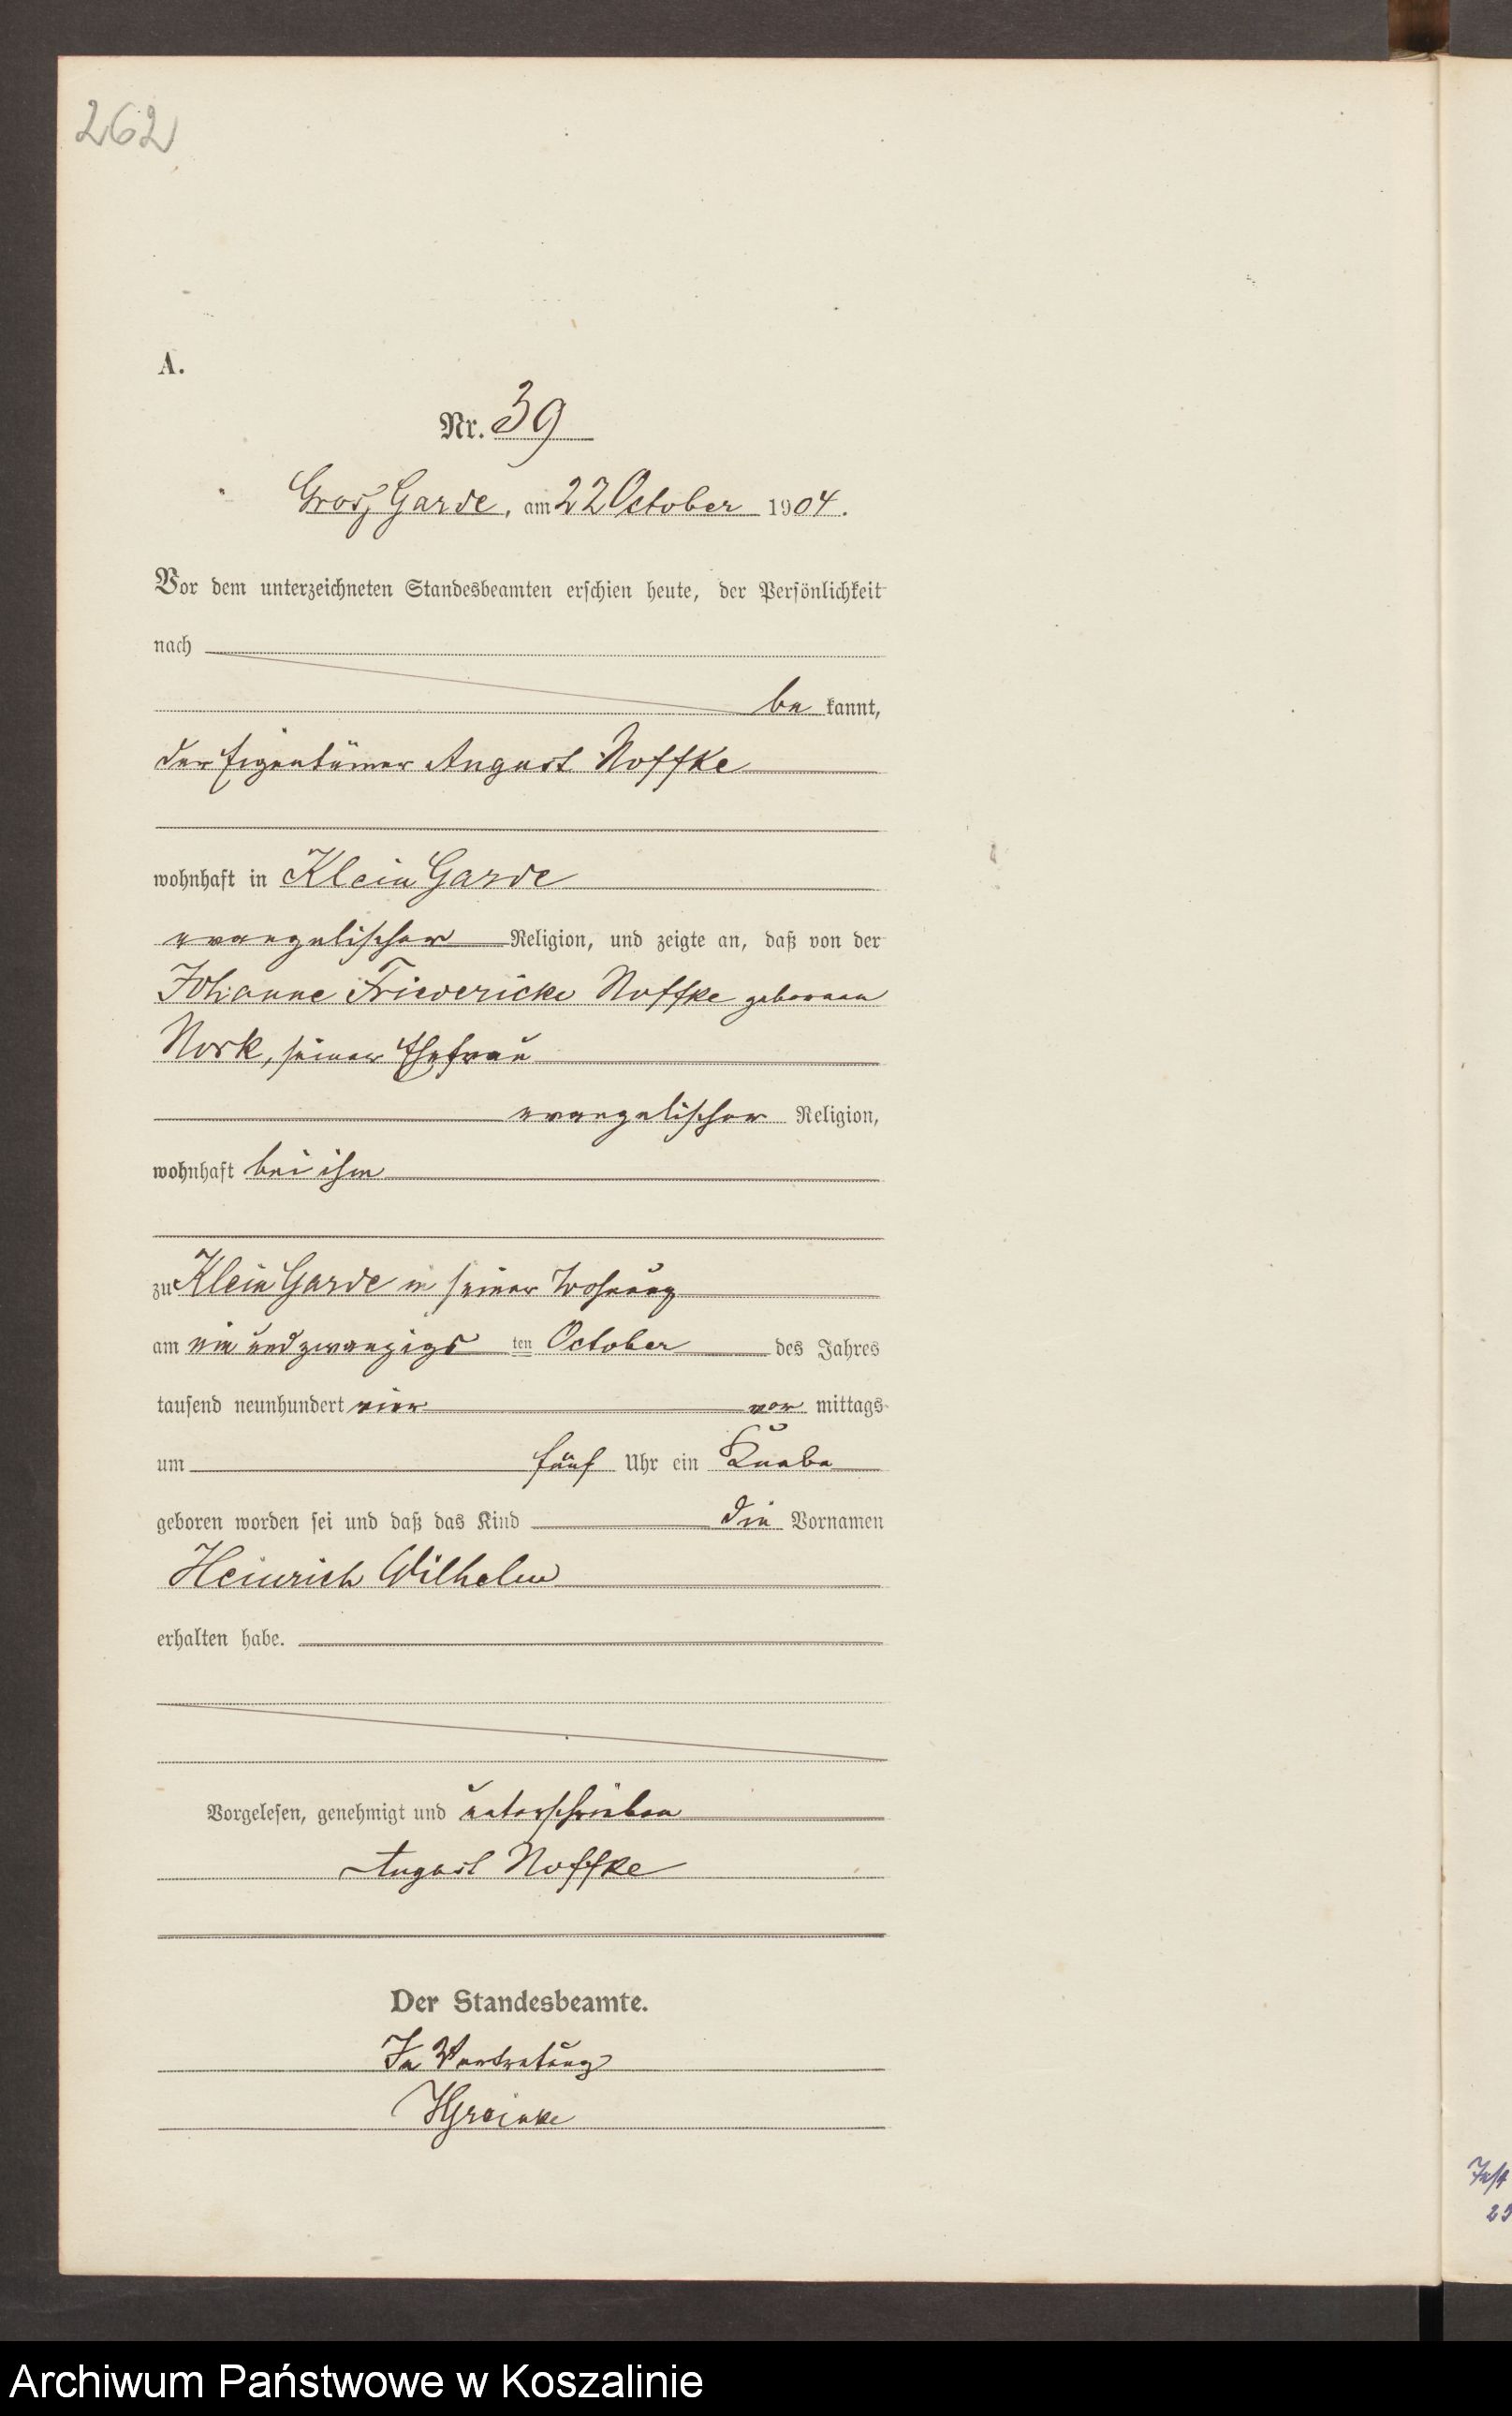 262
A.
Nr. 39
Gross Garde, am 22 October 1904.
Vor dem unterzeichneten Standesbeamten erschien heute, der Persönlichkeit
nach
be kannt,
der Eigentümer August Noffke
wohnhaft in Klein Garde
evangelischer Religion, und zeigte an, daß von der
Johanne Friedericke Noffke geborenen
Nork, seiner Ehefrau
evangelischer Religion,
wohnhaft bei ihm
zu Klein Garde in seiner Wohnung
am ein und zwanzigs ten October des Jahres
tausend neunhundert vier vor mittags
um fünf Uhr ein Knabe
geboren worden sei und daß das Kind die Vornamen
Heinrich Wilhelm
erhalten habe.
Vorgelesen, genehmigt und unterschrieben
August Noffke
Der Standesbeamte.
In Vertretung
25
Archiwum Państwowe w Koszalinie